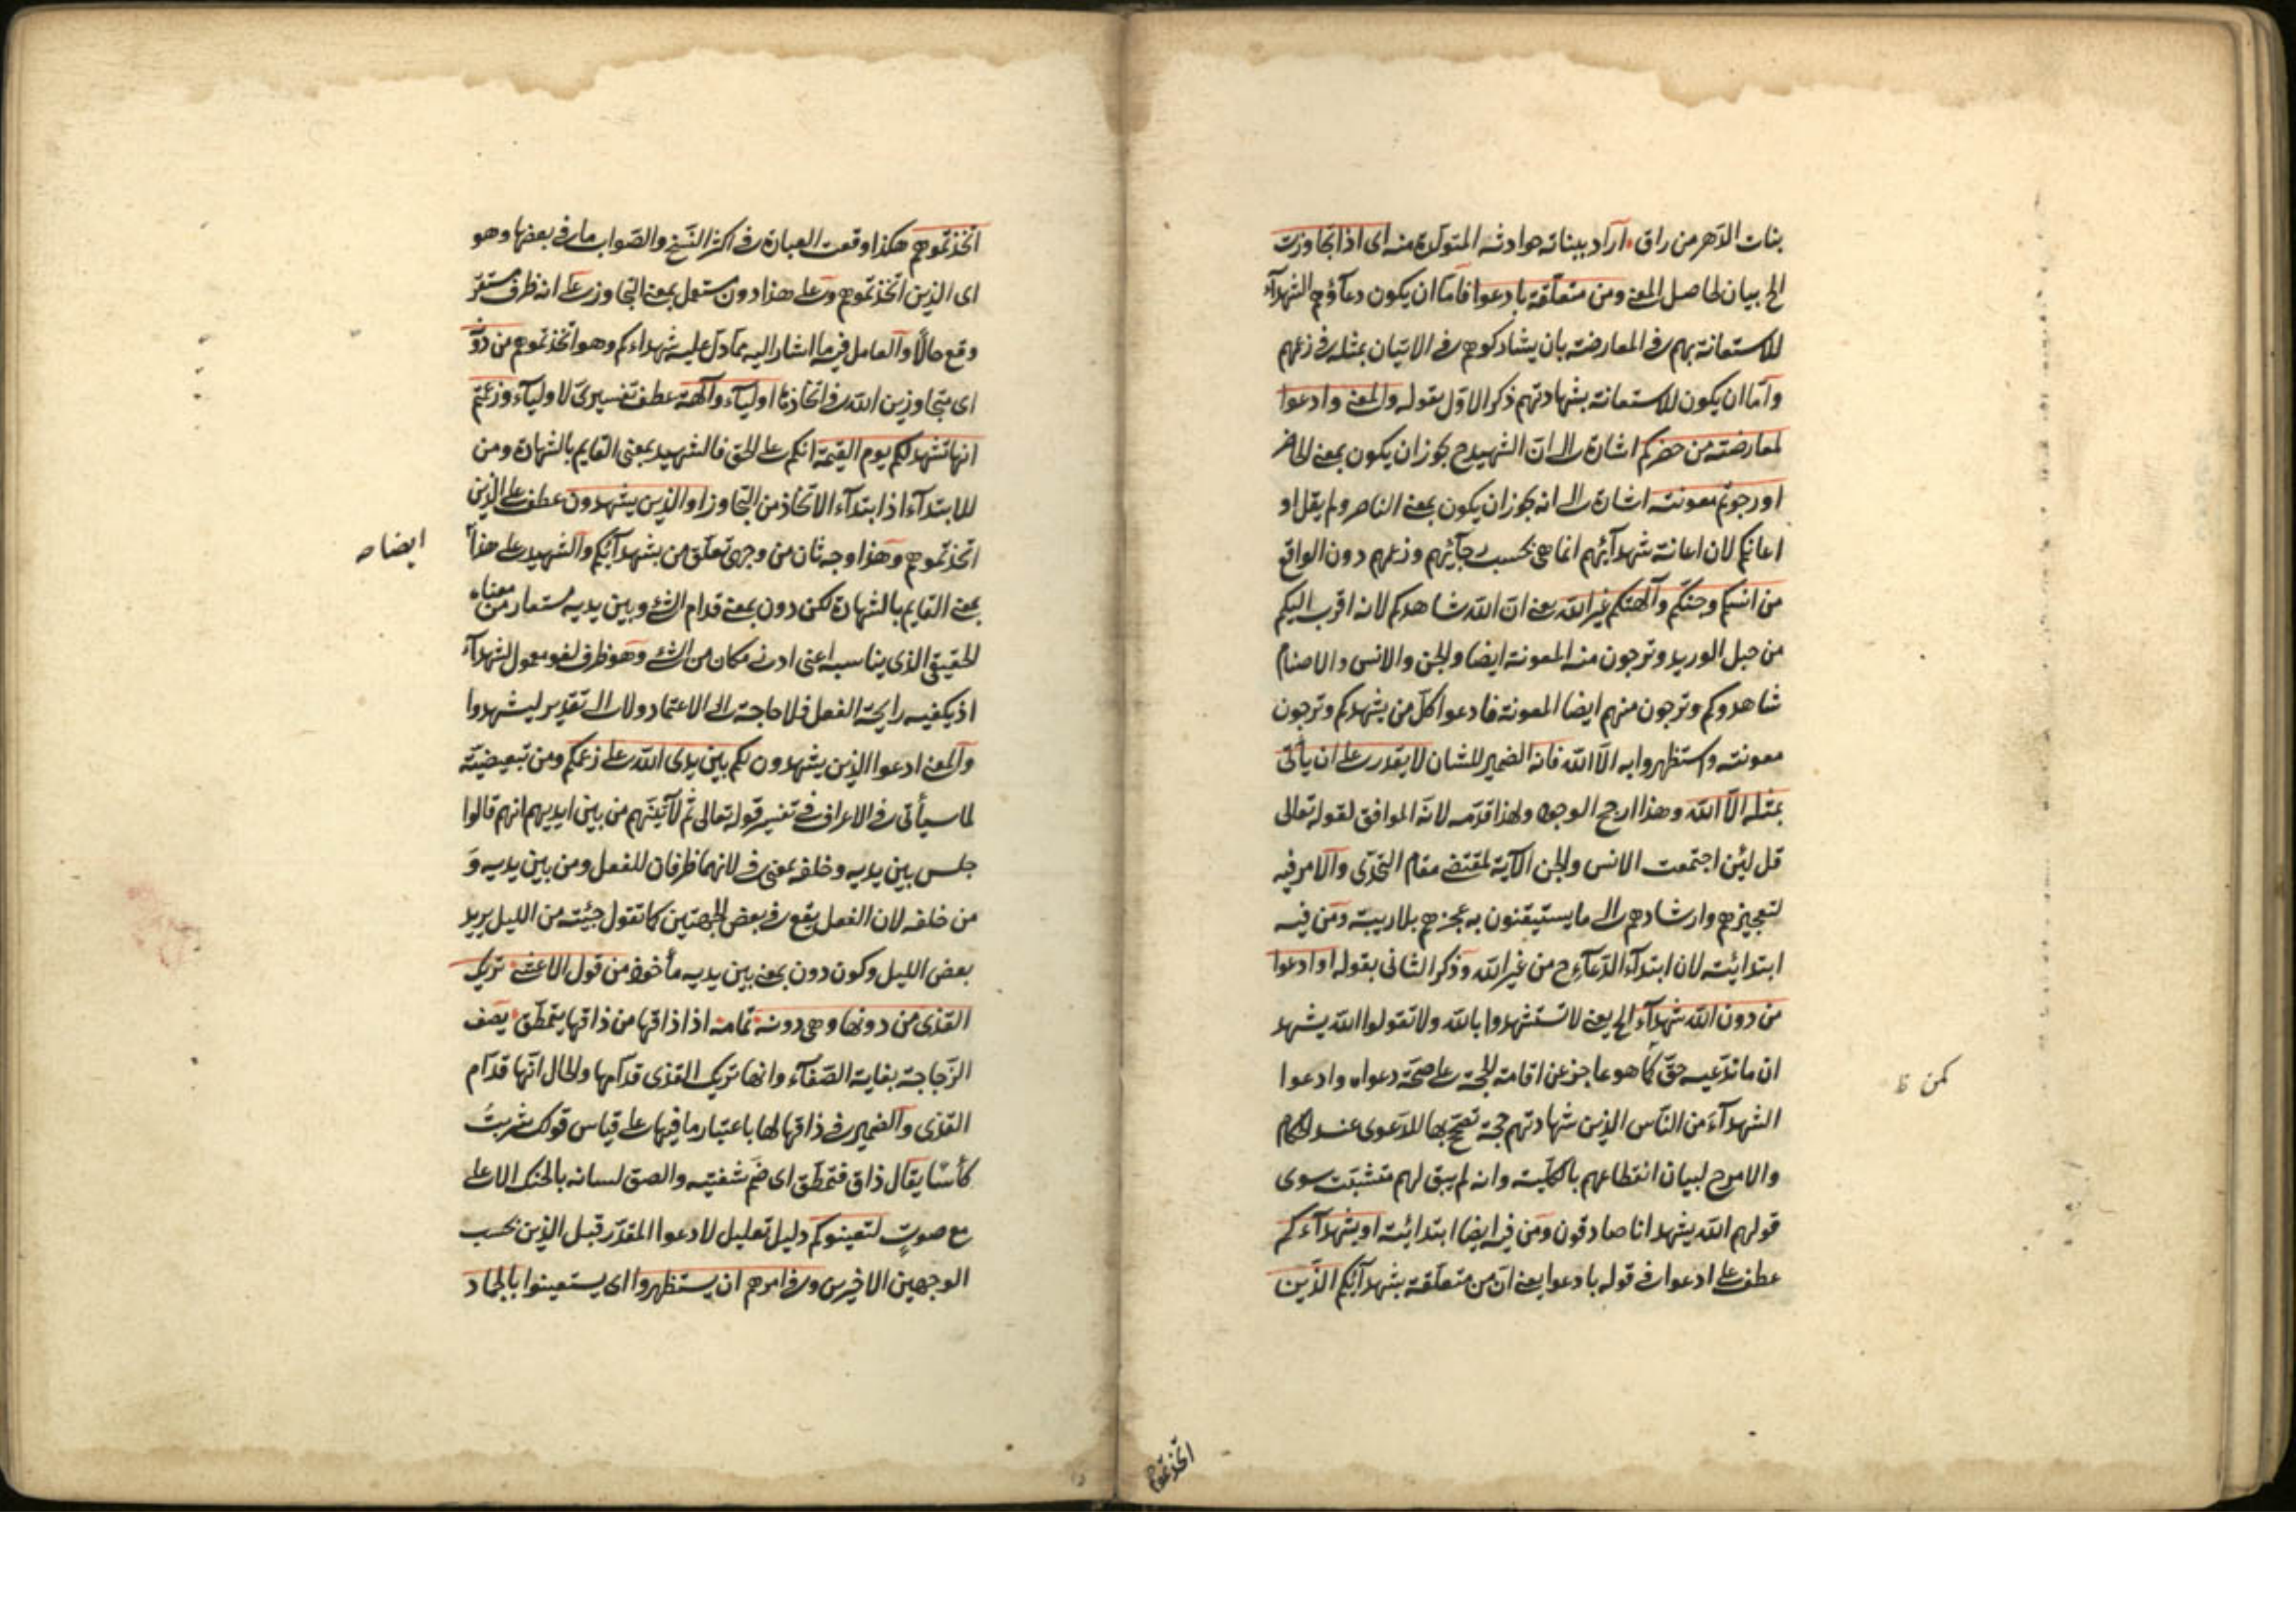 بنات الدهر من راق آراد ببناته حوادثه المتولدة منه اى اذا تجاوزت
الخ بيان لحاصل المعنى ومن متعلقة بادعوا فاما ان يكون دعآؤهم الشهدآء
للاستعانة بهم فى المعارضة بان يشاركوهم فى الاتيان بمثله فى زعمهم
وآما ان يكون للاستعانة بشهادتهم ذكر الاول بقوله والمعنى وادعوا
لمعارضته من حضركم اشارة الى ان الشهيد ح يجوز ان يكون بمعنى الحاضر
او رجوتم معونته اشارة الى انه يجوز ان يكون بمعنى الناصر ولم يقل او
اعانكم لان اعانة شهدآئهم انما هى بحسب رجآئهم وزعمهم دون الواقع
من انسكم وجنكم وآلهتكم غير الله يعنى ان الله شاهدكم لانه اقرب اليكم
من حبل الوريد وترجون منه المعونة ايضا والجن والانس والاصنام
شاهدوكم وترجون منهم ايضا المعونة فادعوا كل من يشهدكم وترجون
معونته واستظهروا به الا الله فانه الضمير للشان لا يقدر على ان يأتى
بمثله الا الله وهذا ارجح الوجوه ولهذا قدمه لانه الموافق لقوله تعالى
قل لئن اجتمعت الانس والجن الآية لمقتضى مقام التحدى والامر فيه
لتعجيزهم وارشادهم الى ما يستيقنون به عجزهم بلا ريبة ومن فيه
ابتدائية لان ابتدآء الدعآء ح من غير الله وذكر الثانى بقوله او ادعوا
من دون الله شهدآء الخ يعنى لا تستشهدوا بالله ولا تقولوا الله يشهد
ان ما ندعيه حق كما هو عاجز عن اقامة الحجة على صحة دعواه وادعوا
كمن ظ
الشهدآء من الناس الذين شهادتهم حجة تصح بها الدعوى عند الحكام
والامر ح لبيان انقطاعهم بالكلية وانه لم يبق لهم متشبث سوى
قولهم الله يشهد انا صادقون ومن فيه ايضا ابتدائية او بشهدآءكم
عطف على ادعوا فى قوله بادعوا يعنى ان من متعلقة بشهدآئكم الذين
اتخذتموهم
اتخذتموهم هكذا وقعت العبارة فى اكثر النسخ والصواب ما فى بعضها وهو
اى الذين اتخذتموهم وعلى هذا دون مستعمل بمعنى التجاوز على انه ظرف مستقر
وقع حالا والعامل فيه ما اشار اليه مما دل عليه شهداءكم وهو اتخذتموهم من دون
اى متجاوزين الله فى اتخاذها اوليآء وآلهة عطف تفسيرى لاوليآء وزعمتم
انها تشهد لكم يوم القيمة انكم على الحق فالشهيد بمعنى القايم بالشهادة ومن
للابتدآء اذ ابتدآء الاتخاذ من التجاوز او الذين يشهدون عطف على الذين
اتخذتموهم وهذا وجه ثان من وجهى تعلق من بشهدآئكم والشهيد على هذا
ايضا صح
بمعنى القايم بالشهادة لكن دون بمعنى قدام الشئ وبين يديه مستعار من معناه
الحقيقى الذى يناسبه اعنى ادنى مكان من الشئ وهو ظرف لغو معمول لشهدآء
اذ يكفيه رايحة الفعل فلا حاجة الى الاعتماد ولا الى تقدير ليشهدوا
والمعنى ادعوا الذين يشهدون لكم بين يدى الله على زعمكم ومن تبعيضية
لما سيأتى فى الاعراف فى تفسير قوله تعالى ثم لآتينهم من بين ايديهم انهم قالوا
جلس بين يديه وخلفه بمعنى فى لانهما ظرفان للفعل ومن بين يديه و
من خلفه لان الفعل يقع فى بعض الجهتين كما تقول جئته من الليل يريد
بعض الليل وكون دون بمعنى بين يديه مأخوذ من قول الاعشى تريك
القذى من دونها وهى دونه تمامه اذا ذاقها من ذاقها يتمطق يصف
الزجاجة بغاية الصفآء وانها تريك القذى قدآمها والحال انها قدآم
القذى والضمير فى ذاقها لها باعتبار ما فيها على قياس قولك شربت
كأسا يقال ذاق فتمطق اى ضم شفتيه والصق لسانه بالحنك الاعلى
مع صوت لتعينوكم دليل تعليل لادعوا المقدر قبل الذين بحسب
الوجهين الاخيرين وفى امرهم ان يستظهروا اى يستعينوا بالجماد